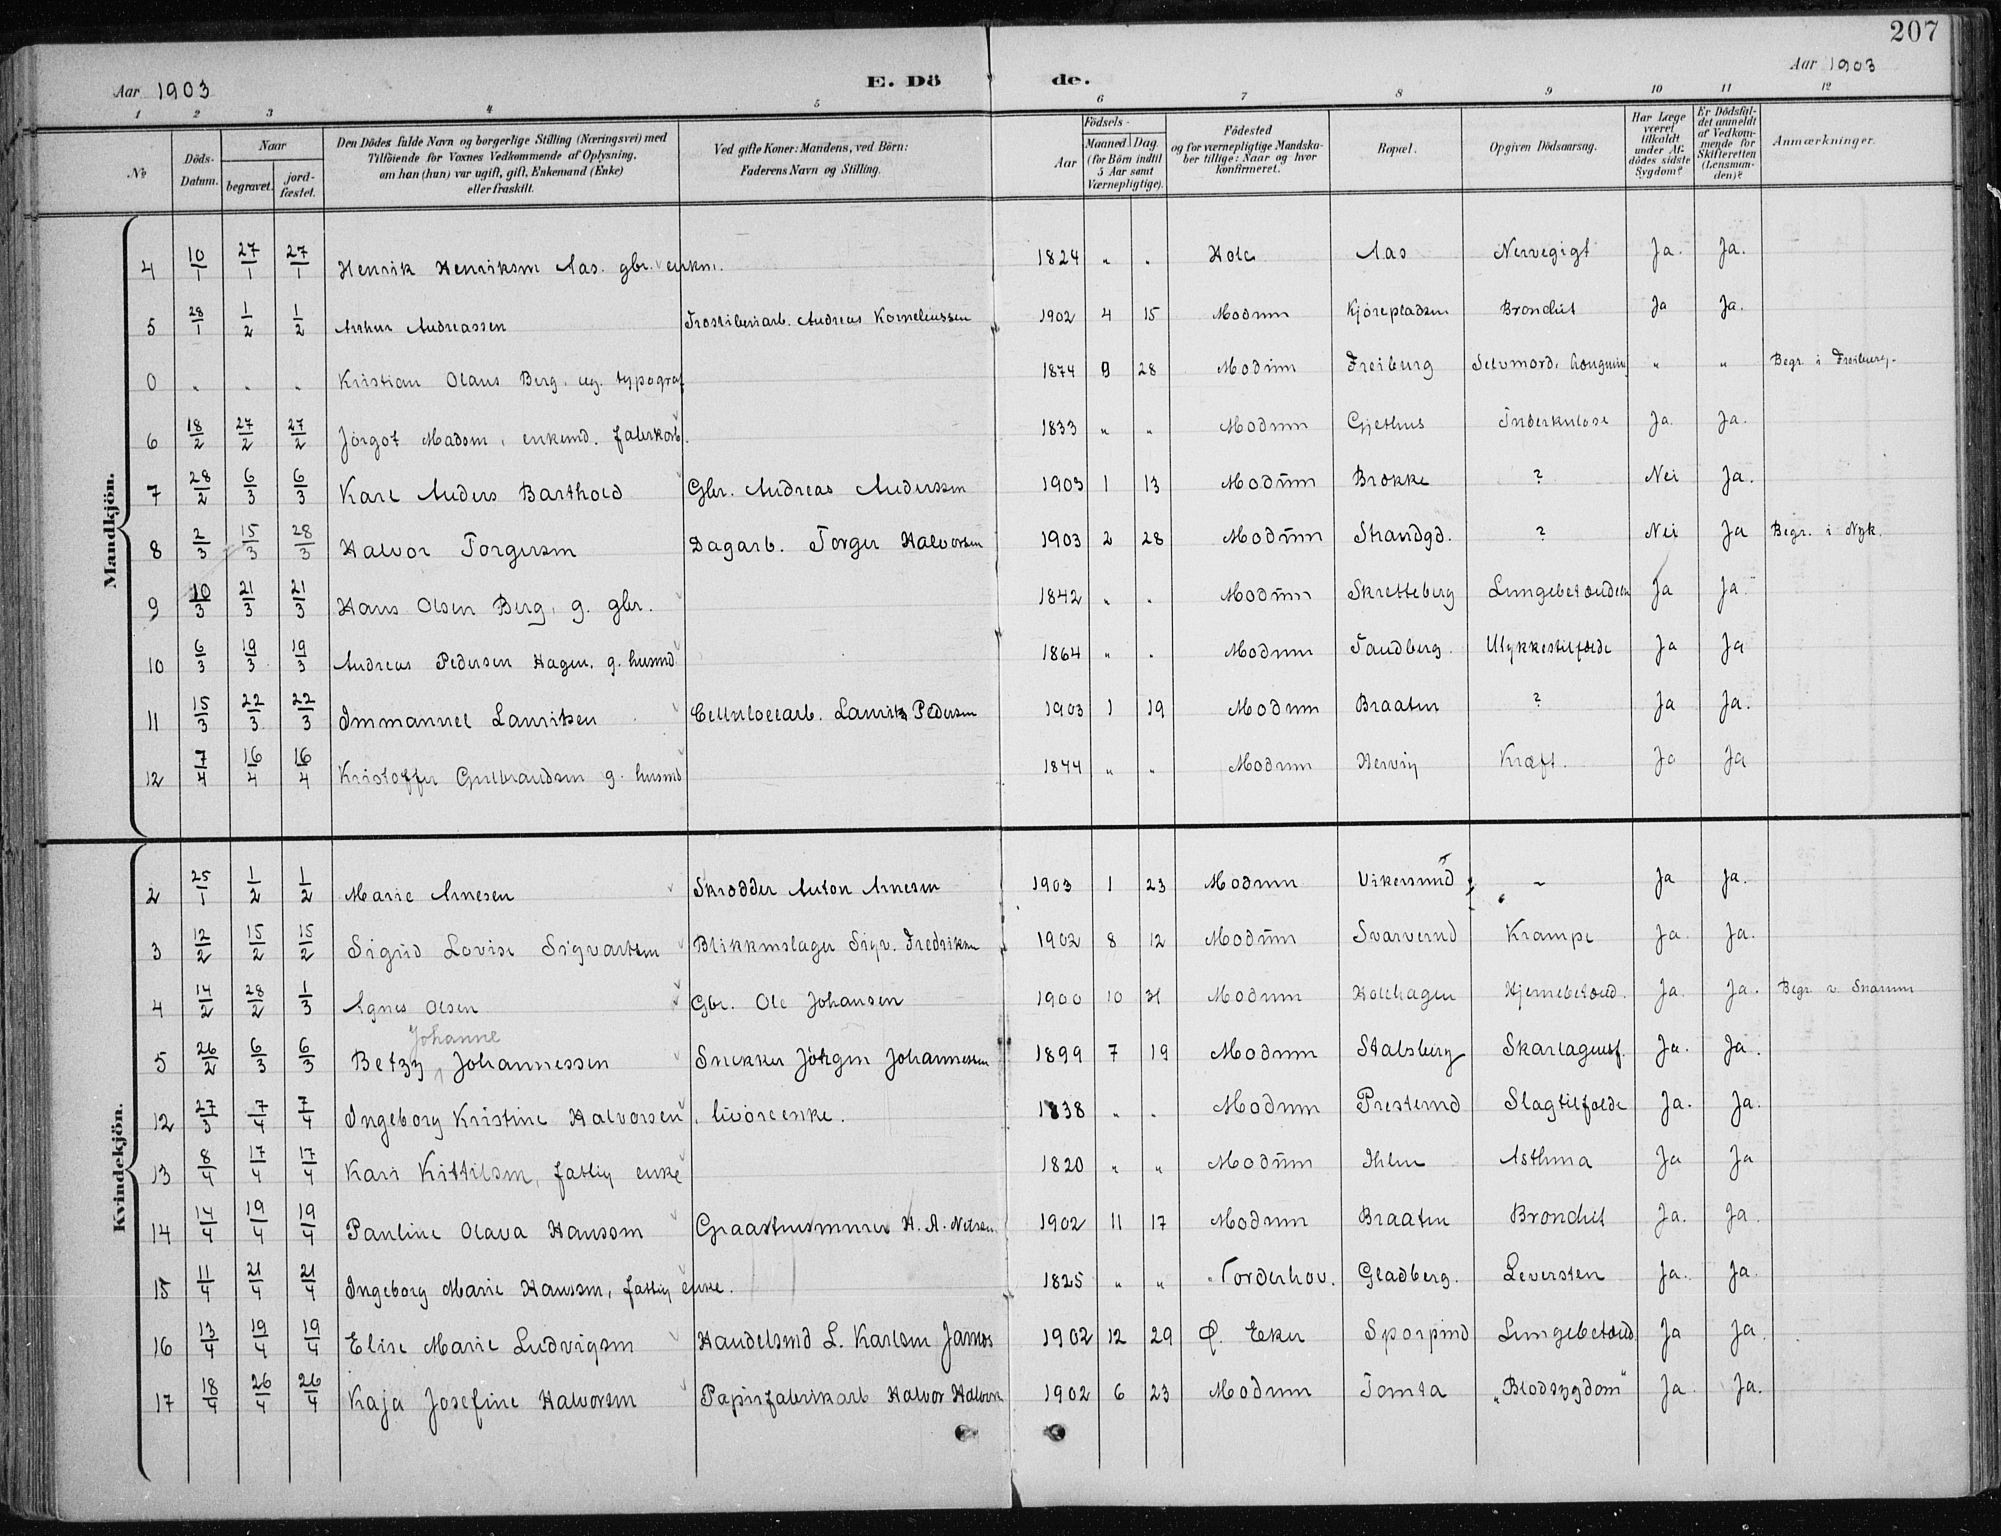 207
Aar 1903 E. Dö de. Aar 1903
1 2 3 4 5 6 7 8 9 10 11 12
No Döds-Datum. Naar begravet. jordfæstet. Den Dödes fulde Navn og borgerlige Stilling (Næringsvei) med Tilföiende for Voxnes Vedkommende af Oplysning, om han (hun) var ugift, gift, Enkemand (Enke) eller fraskilt. Ved gifte Koner: Mandens, ved Börn: Faderens Navn og Stilling. Födsels- Aar Maaned Dag. (for Börn indtil 5 Aar samt Værnepligtige). Födested og for værnepligtige Mandskaber tillige: Naar og hvor konfirmeret. Bopæl. Opgiven Dödsaarsag. Har Læge været tilkaldt under Afdödes sidste Sygdom? Er Dödsfaldet anmeldt af Vedkommende for Skifteretten (Lensmanden)? Anmærkninger.
Mandkjön.
4 10/1 27/1 27/1 Henrik Henriksen Aas. gbr. enkm. 1824 " " Hole Aas Nervegigt Ja. Ja.
5 28/1 1/2 1/2 Arthur Andreassen Træsliberiarb. Andreas Korneliussen 1902 4 15 Modum Kjørepladsen Bronchit Ja Ja.
0 " " " Kristian Olaus Berg. ug. typograf 1874 9 28 Modum Freiburg Selvmord, hængning " " Begr. i Freiburg.
6 18/2 27/2 27/2 Jörgot Madsen, enkemd. fabrikarb. 1833 " " Modum Gjethus Tuberkulose Ja. Ja.
7 28/2 6/3 6/3 Karl Anders Barthold Gbr. Andreas Anderssen 1903 1 13 Modum Brekke ? Nei Ja.
8 2/3 15/3 28/3 Halvor Torgersen Dagarb. Torger Halvorsen 1903 2 28 Modum Strandgd. ? Nei Ja Begr. i Nyk.
9 10/3 21/3 21/3 Hans Olsen Berg, g. gbr. 1842 " " Modum Skretteberg Lungebetændelse Ja Ja.
10 6/3 19/3 19/3 Andreas Pedersen Hagen, g. husmd 1864 " " Modum Sandberg. Ulykkestilfælde Ja Ja
11 15/3 22/3 22/3 Immanuel Lauritsen Cellulosearb. Laurits Pedersen 1903 1 19 Modum Braaten ? Ja Ja.
12 7/4 16/4 16/4 Kristoffer Gulbrandsen g. husmd 1844 " " Modum Kræft. Ja Ja
Kvindekjön.
2 25/1 1/2 1/2 Marie Arnesen Skrædder Anton Arnesen 1903 1 23 Modum Vikersund ~ Ja Ja.
3 12/2 15/2 15/2 Sigrid Lovise Sigvartsen Blikkenslager Sigv. Fredriksen 1902 8 12 Modum Svarverud Krampe Ja. Ja.
4 14/2 28/2 1/3 Agnes Olsen Gbr. Ole Johansen 1900 10 31 Modum Kolhagen Hjernebetænd. Ja. Ja. Begr. v. Snarum
Johanne
5 26/2 6/3 6/3 Betzy Johannessen Snekker Jörgen Johannessen 1899 7 19 Modum Stalsberg Skarlagensf. Ja. Ja.
12 27/3 7/4 7/4 Ingeborg Kristine Halvorsen, livöreenke. 1838 " " Modum Presterud Slagtilfælde Ja. Ja.
13 8/4 17/4 17/4 Kari Kittilsen, fattig enke 1820 " " Modum Ihlen Asthma Ja Ja
14 14/4 19/4 19/4 Pauline Olava Hansen Graastensmurer H. A. Nilsen 1902 11 17 Modum Braaten Bronchit Ja. Ja.
15 11/4 21/4 21/4 Ingeborg Marie Hansen, fattig enke. 1825 " " Norderhov. Gladberg. Leversten Ja. Ja.
16 13/4 19/4 19/4 Elise Marie Ludvigsen Handelsmd L. Karlsen Jamos 1902 12 29 Ø. Eker Sporpind Lungebetænd. Ja Ja.
17 18/4 26/4 26/4 Kaja Josefine Halvorsen Papirfabrikarb Halvor Halvorsen 1902 6 23 Modum Tomta "Blodsygdom" Ja Ja.